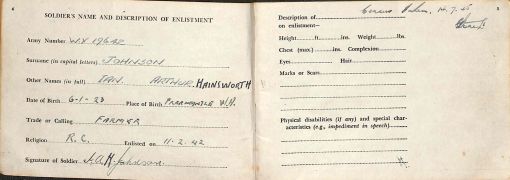 4
SOLDIER'S NAME AND DESCRIPTION OF ENLISTMENT
Army Number WX 19642
Surname (in capital letters) JOHNSON
Other Names (in full) IAN ARTHUR HAINSWORTH
Date of Birth 6-1-23 Place of Birth FREEMANTLE W.A.
Trade or Calling FARMER
Religion R.C. Enlisted on 11-2-42
Signature of Soldier I.A.H. Johnson
5
Description of
on enlistment—
Height ft. ins. Weight lbs.
Chest (max.) ins. Complexion
Eyes Hair
Marks or Scars
Physical disabilities (if any) and special char-
acteristics (e.g., impediment in speech)